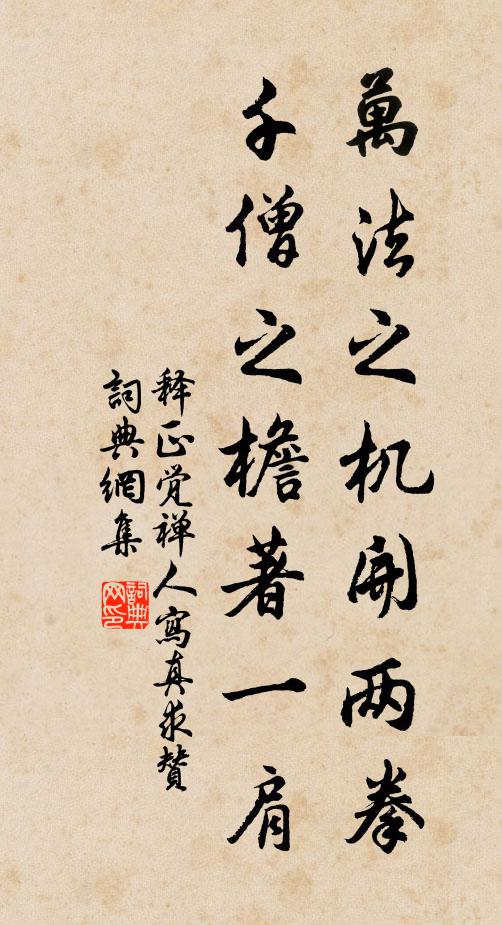 萬法之机開两拳
千僧之檐著一肩
释正觉禅人寫真求贊
詞典網集
詞典网印